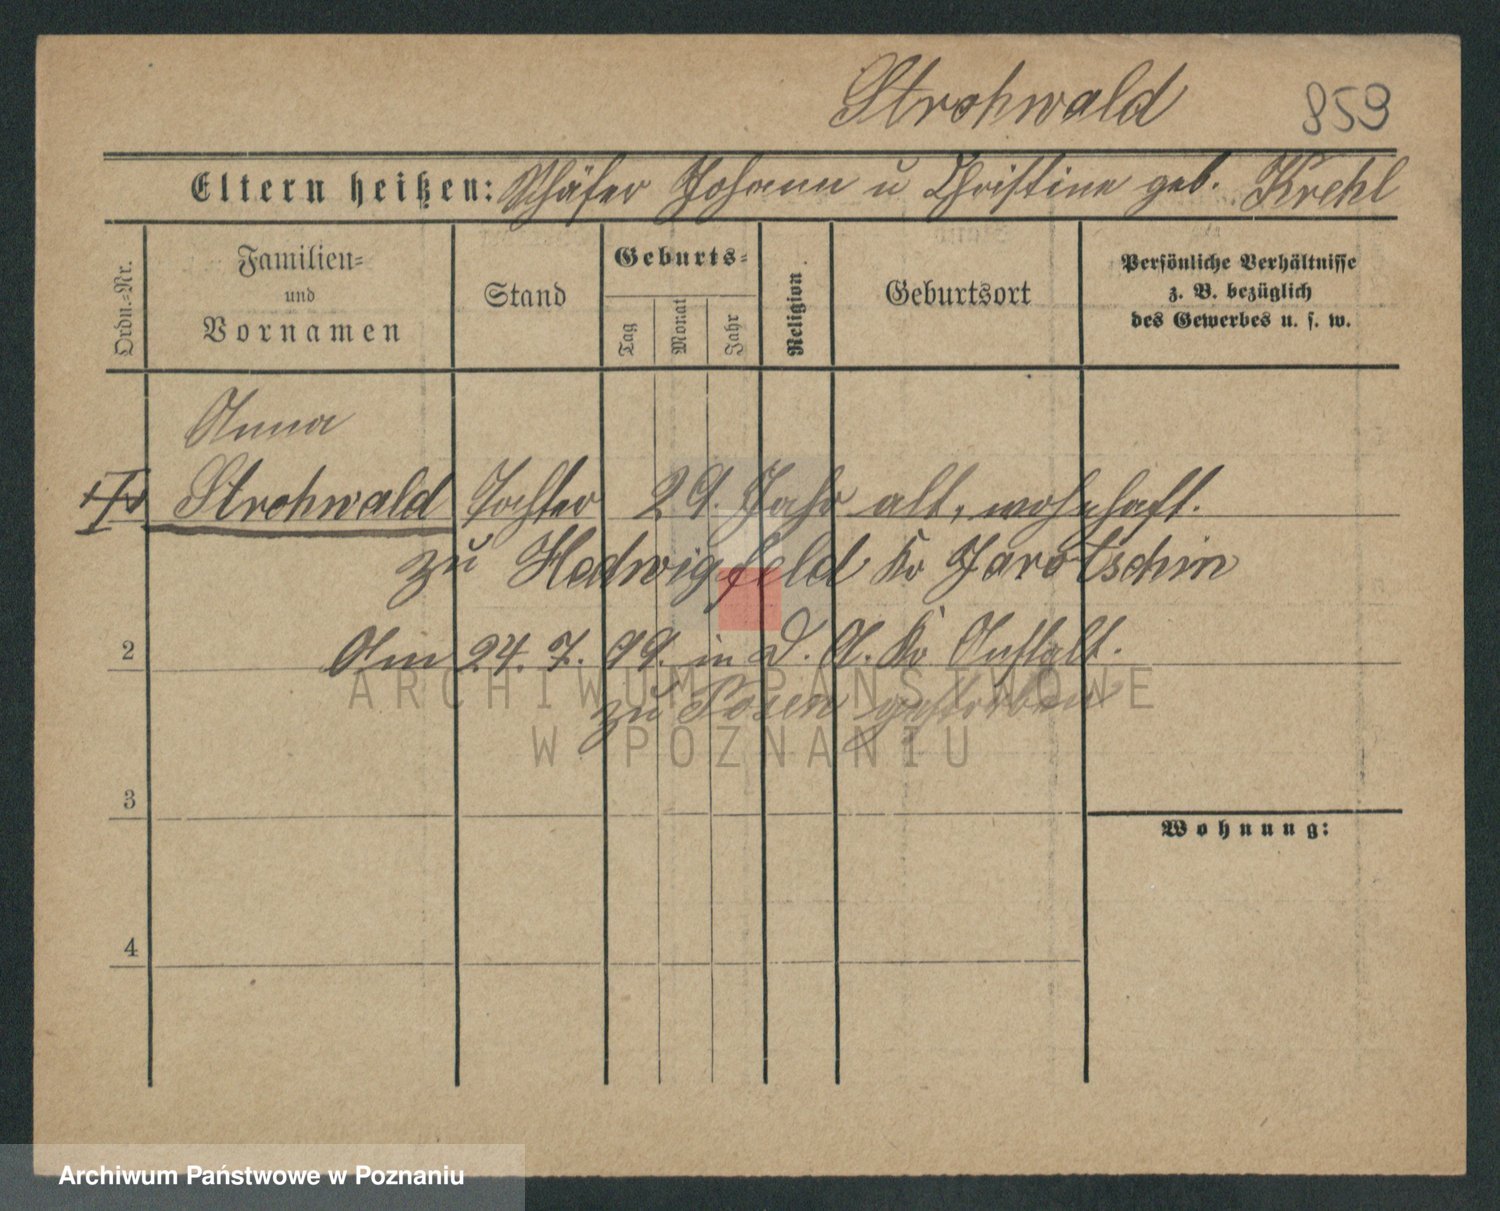 Strohwald 859
Eltern heißen: Schäfer Johann u Christine geb. Krehl
Ordn.-Nr.
Familien-
und
Vornamen
Stand
Geburts-
Tag
Monat
Jahr
Religion
Geburtsort
Persönliche Verhältnisse
z. B. bezüglich
des Gewerbes u. s. w.
Anna
Strohwald Tochter 29. Jahr alt, wohnhaft.
zu Hedwigfeld Kr Jarotschin
2 Am 24. 7. 99. in D. A. Kr Anstalt.
zu Posen gestorben
ARCHIWUM PAŃSTWOWE
W POZNANIU
3
Wohnung:
4
Archiwum Państwowe w Poznaniu